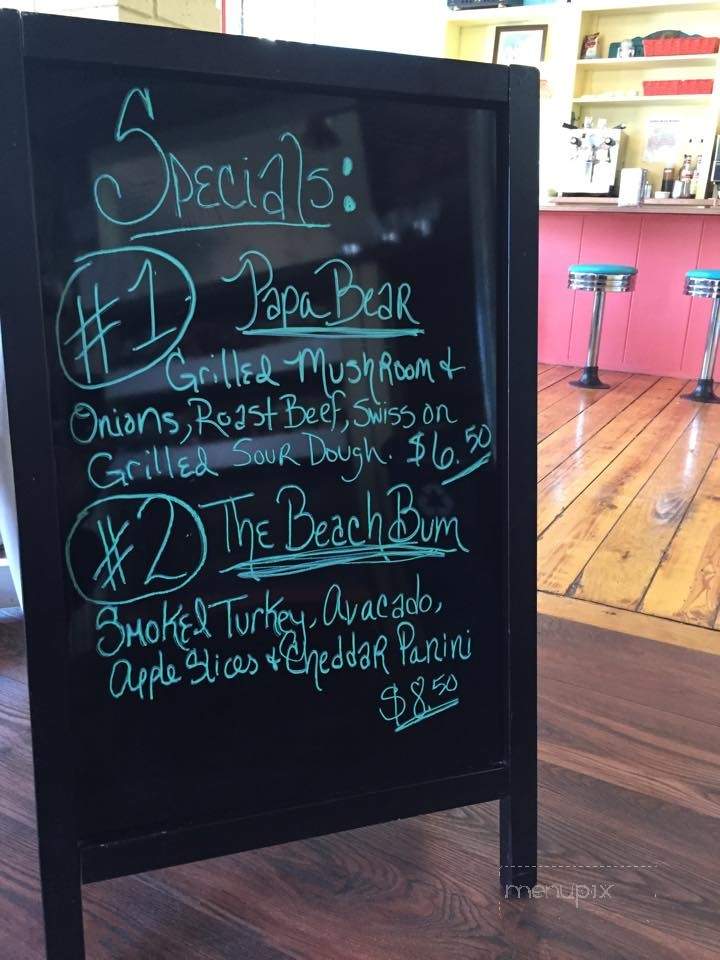 Specials:
#1 Papa Bear
Grilled Mushroom &
Onions, Roast Beef, Swiss on
Grilled Sour Dough. $6.50
#2 The Beach Bum
Smoked Turkey, Avacado,
Apple Slices & Cheddar Panini
$8.50
menupix